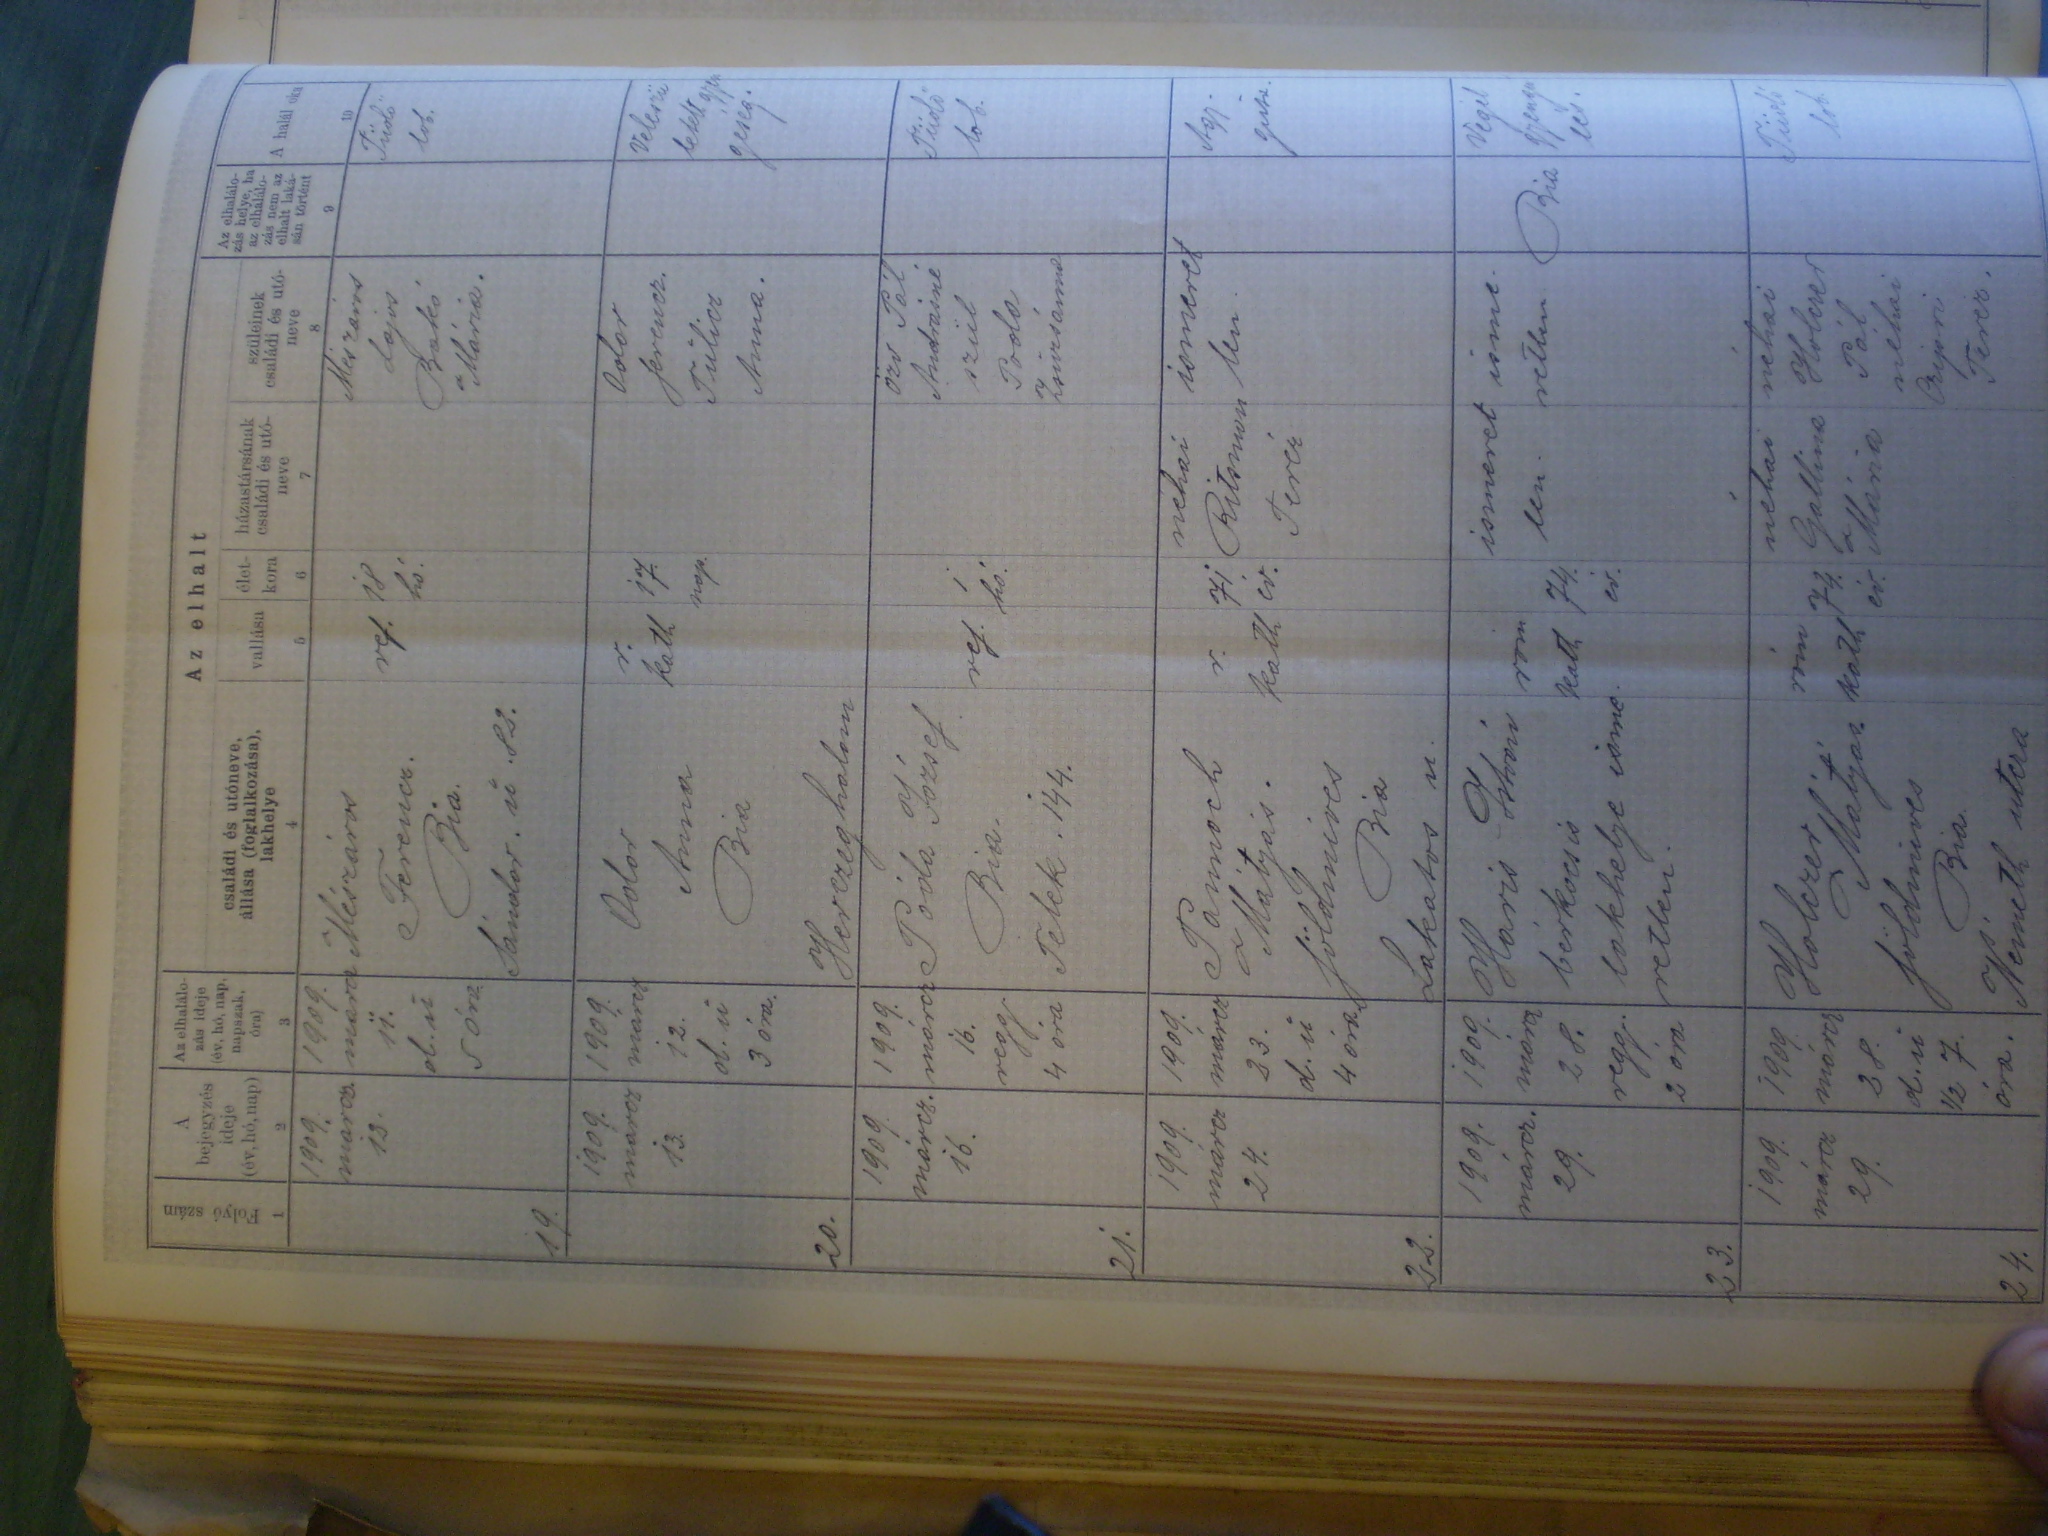 Az elhalt
Folyó szám
A
bejegyzés
ideje
(év, hó, nap)
Az elhalálo-
zás ideje
(év, hó, nap,
napszak,
óra)
családi és utóneve,
állása (foglalkozása),
lakhelye
vallása
élet-
kora
házastársának
családi és utó-
neve
szüleinek
családi és utó-
neve
Az elhalálo-
zás helye, ha
az elhálálo-
zás nem az
elhalt laká-
sán történt
A halál oka
1
2
3
4
5
6
7
8
9
10
19.
1909.
marcz.
13.
1909.
marcz
11.
d. u
5 óra
Mészáros
Ferencz.
Bia.
Sándor. u. 82.
ref.
18
hó.
Mészáros
Lajos
Bakó
Mária.
Tüdő
lob.
20.
1909.
marcz
13.
1909.
márcz
12.
d. ü
3 óra.
Dobor
Anna
Bia
Herczeghalom
r.
kath
17.
nap.
Dobor
ferencz.
Anna.
Veleszü
letett gyen
geség.
21.
1909
márcz.
16.
1909.
márcz
16.
regg.
4 óra
Póda József
Bia.
Telek. 144.
ref.
1
hó.
özv Pál
Andrásné
szül
Poda
Zsuzsánna
Tüdő
lob.
22.
1909
márcz
24.
1909.
márcz
23.
d. ü
4 óra
Mátyás.
földmives
Bia
Lakatos u.
r.
kath
71
év.
néhai
Teréz
ismeret
len.
Agg.
23.
1909.
márcz.
29.
1909.
márcz
28.
regg.
2 óra
Haris István
bérkocsis
lakhelye isme
retlen.
róm
kath
74.
év.
ismeret
len.
isme.
retlen.
Bia
Végel
gyengü
lés.
24.
1909.
márcz
29.
1909
márcz
28.
d. ü
1/2 7.
óra.
Holczer
Mátyás
földmives
Bia.
Németh utcza
róm
kath
74.
év.
néhai
Gallina
Mária
néhai
Holczer
Pál
néhai
Terez.
Tüdő
lob.